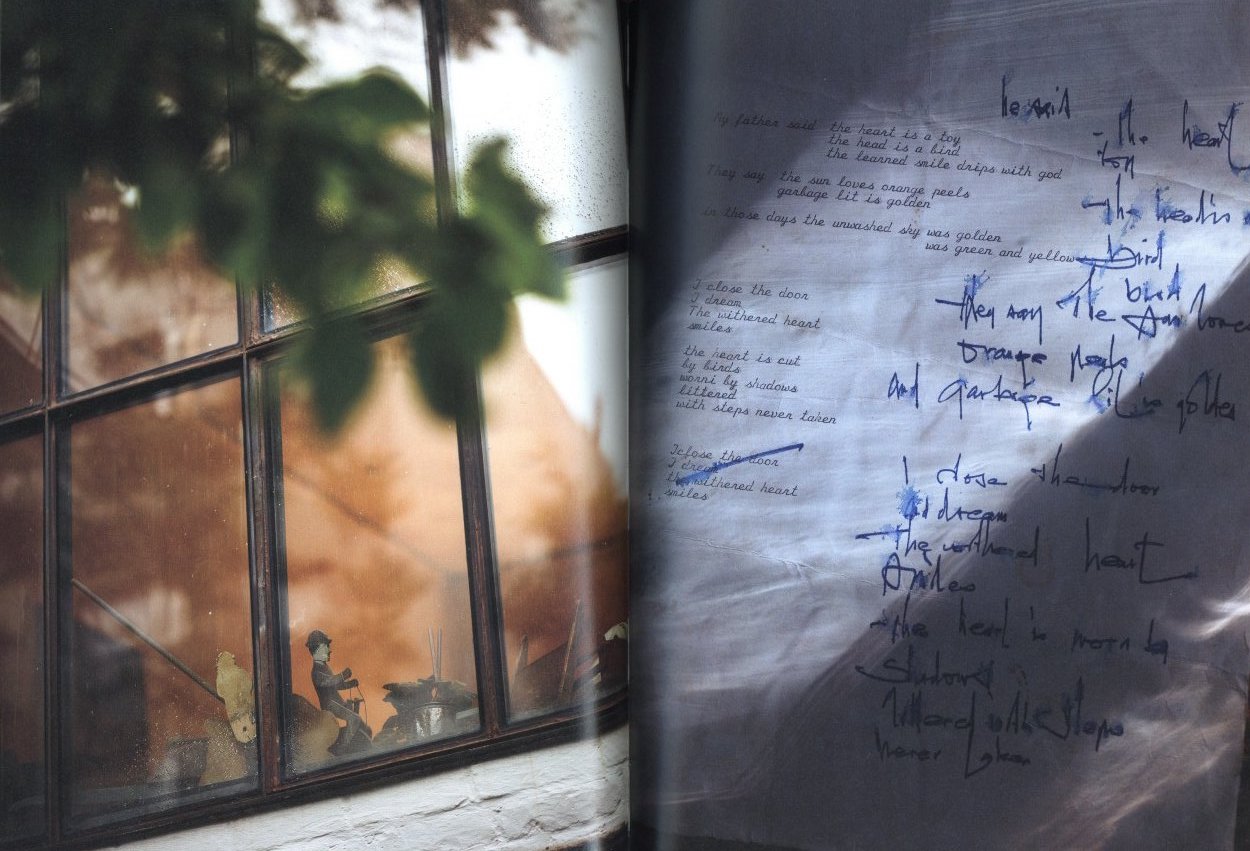 My father said the heart is a toy
the head is a bird
the learned smile drips with god
They say the sun loves orange peels
garbage lit is golden
in those days the unwashed sky was golden
was green and yellow
I close the door
I dream
The withered heart
smiles
the heart is cut
by birds
worni by shadows
littered
with steps never taken
I close the door
I dream
the withered heart
smiles
he said
the heart
toy
the head is
bird
bird
they say the sun loves
orange peels
and garbage lit is golden
I close the door
I dream
The withered heart
smiles
the heart is worn by
shadows
littered with steps
never taken